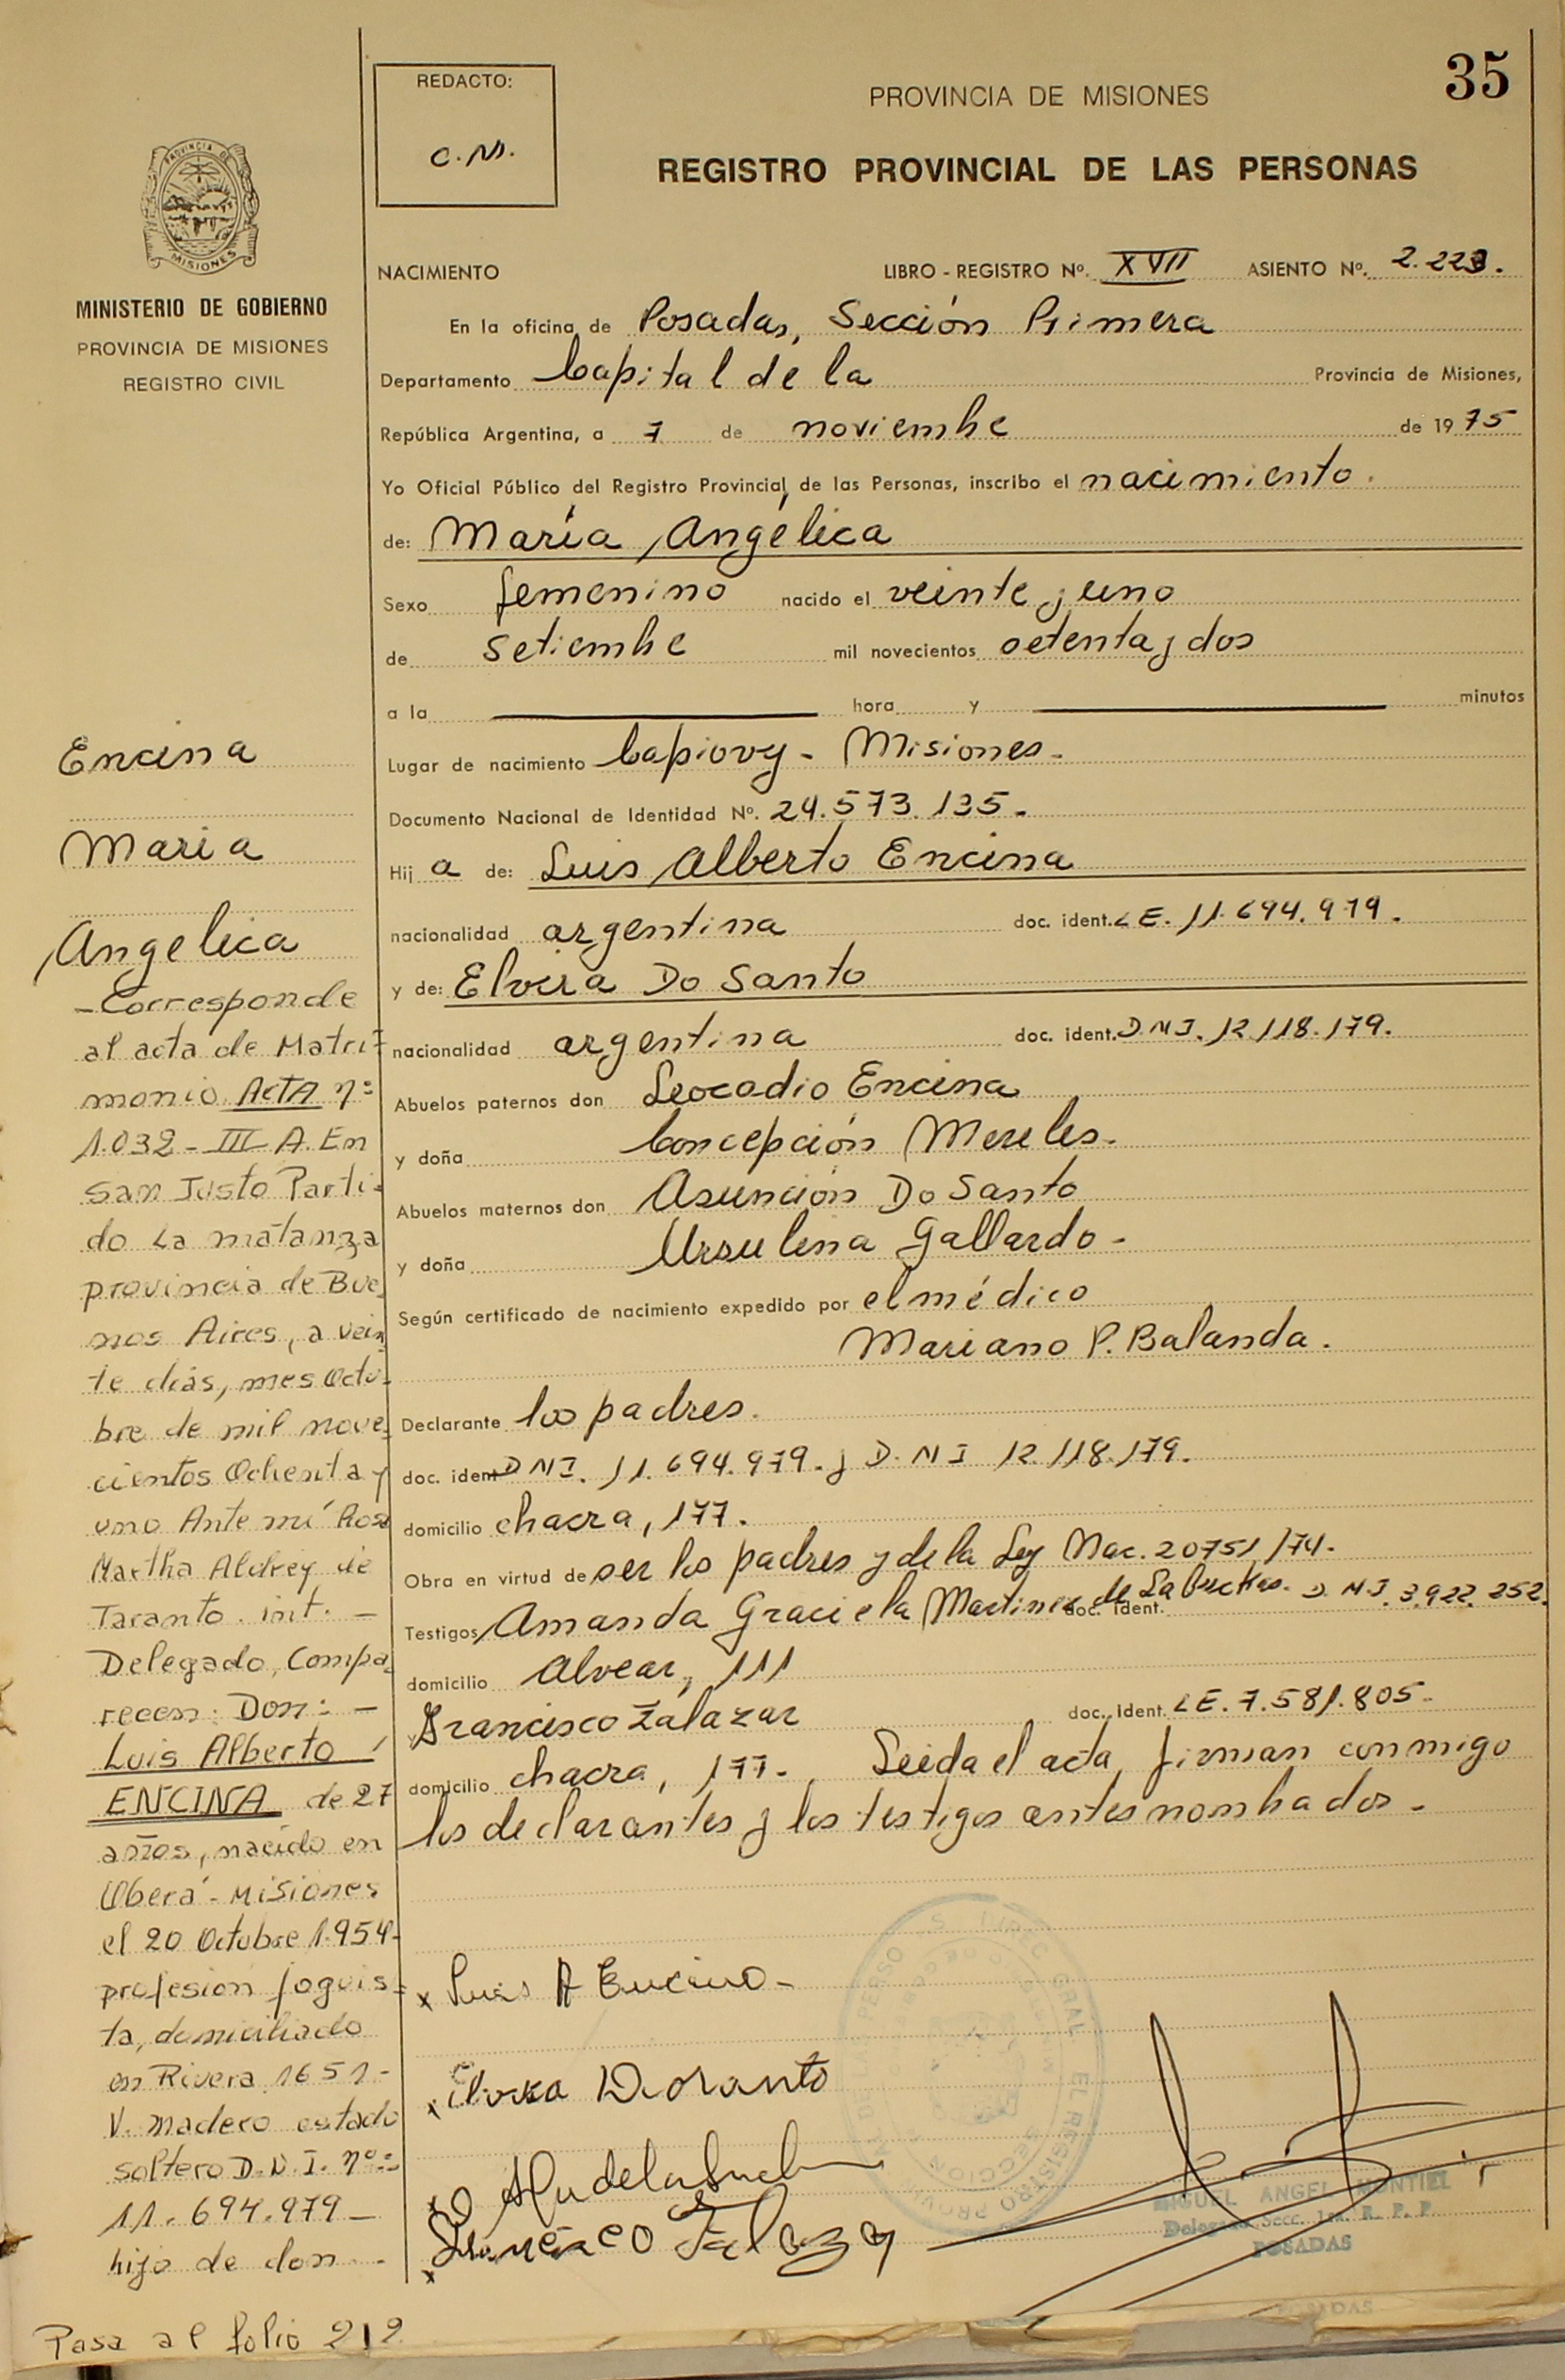 35
REDACTO:
C.M.
PROVINCIA DE MISIONES
REGISTRO PROVINCIAL DE LAS PERSONAS
PROVINCIA DE
MISIONES
MINISTERIO DE GOBIERNO
PROVINCIA DE MISIONES
REGISTRO CIVIL
NACIMIENTO LIBRO - REGISTRO Nº. XVII ASIENTO Nº. 2.223.
En la oficina de Posadas, Sección Primera
Departamento Capital de la Provincia de Misiones,
República Argentina, a 7 de noviembre de 1975
Yo Oficial Público del Registro Provincial de las Personas, inscribo el nacimiento.
de: María Angélica
Sexo femenino nacido el veinte y uno
de setiembre mil novecientos setenta y dos
a la hora y minutos
Lugar de nacimiento Capiovy - Misiones -
Documento Nacional de Identidad Nº. 24.573.135 -
Hij a de: Luis Alberto Encina
nacionalidad argentina doc. ident. LE. 11.694.979.
y de: Elvira Do Santo
nacionalidad argentina doc. ident. D.N.I. 12.118.179.
Abuelos paternos don Leocadio Encina
y doña Concepción Mereles -
Abuelos maternos don Asunción Do Santo
y doña Ursulina Gallardo -
Según certificado de nacimiento expedido por el médico
Mariano P. Balanda.
Declarante los padres.
doc. ident D N I. 11.694.979. y D. N I 12.118.179.
domicilio chacra, 177.
Obra en virtud de ser los padres y de la Ley Nac. 20751/74.
Testigos Amanda Graciela Martinez de doc. ident. D N I. 3.922.252.
domicilio Alvear, 111
Francisco Zalazar doc. ident. LE. 7.581.805 -
domicilio chacra, 177. Leida el acta, firman conmigo
los declarantes y los testigos antes nombrados -
Encina
Maria
Angelica
- Corresponde
al acta de Matri=
monio ACTA nº
1.032 - III A. En
San Justo Parti=
do La matanza
provincia de Bue=
nos Aires, a vein
te días, mes Octu=
bre de mil nove=
cientos Ochenta y
uno Ante mí Rosa
Martha Aldrey de
Taranto. int. -
Delegado, Compa=
recen: Don: -
Luis Alberto
ENCINA de 27
años, nacido en
Oberá - Misiones
el 20 Octubre 1.954-
profesion foguis=
ta, domiciliado
en Rivera 1651 -
V. madero estado
soltero D.N.I. nº=
11.694.979 -
hijo de don -
Pasa al folio 212
x Luis A Encina -
x Elvira Dosanto
x Francisco Zalazar
MIGUEL ANGEL MONTIEL
Delegado Secc. 1ra. R. P. P.
POSADAS